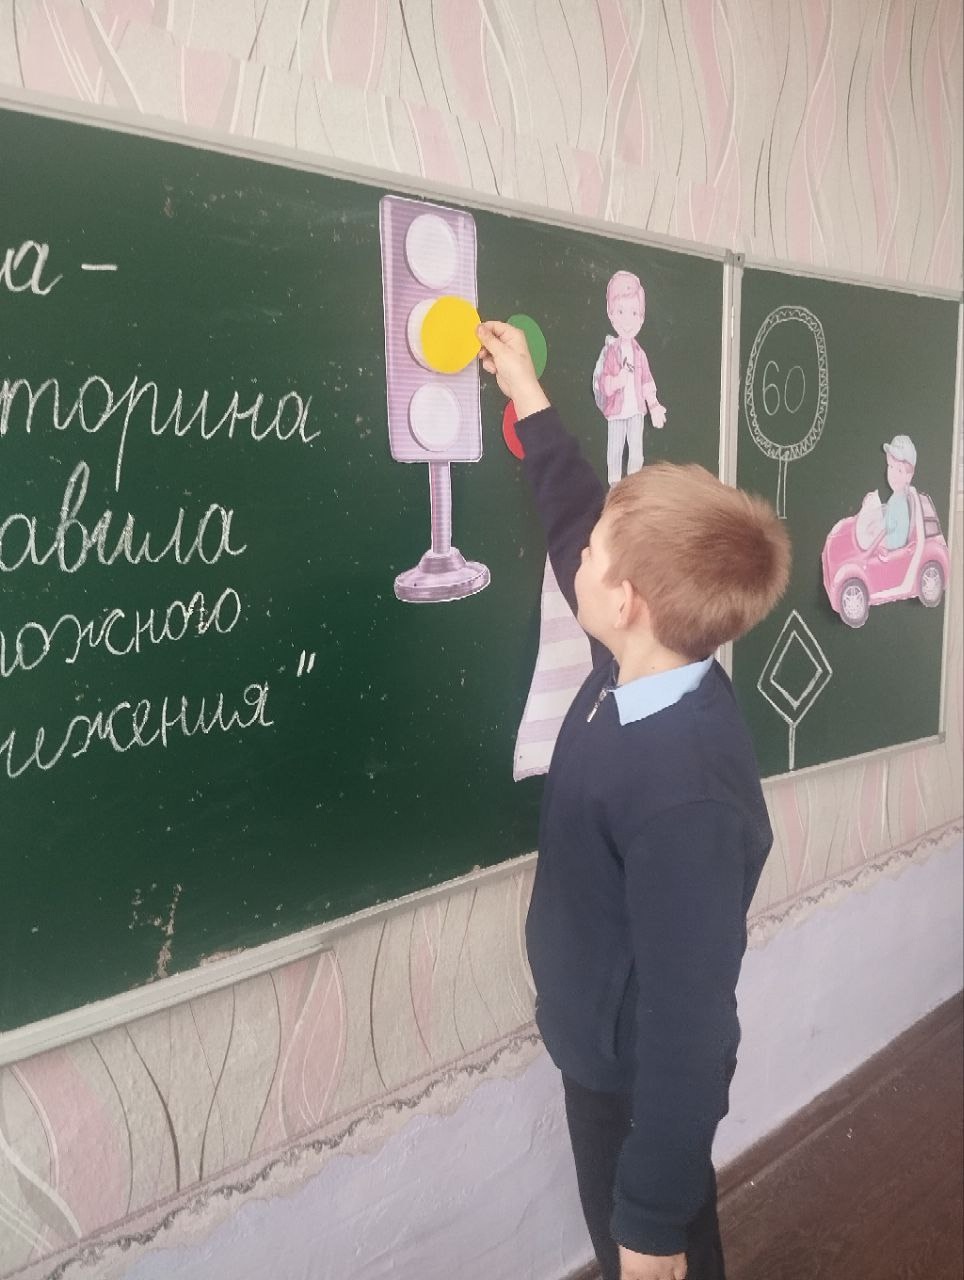 а -
торина
авила
ожного
ижения"
60